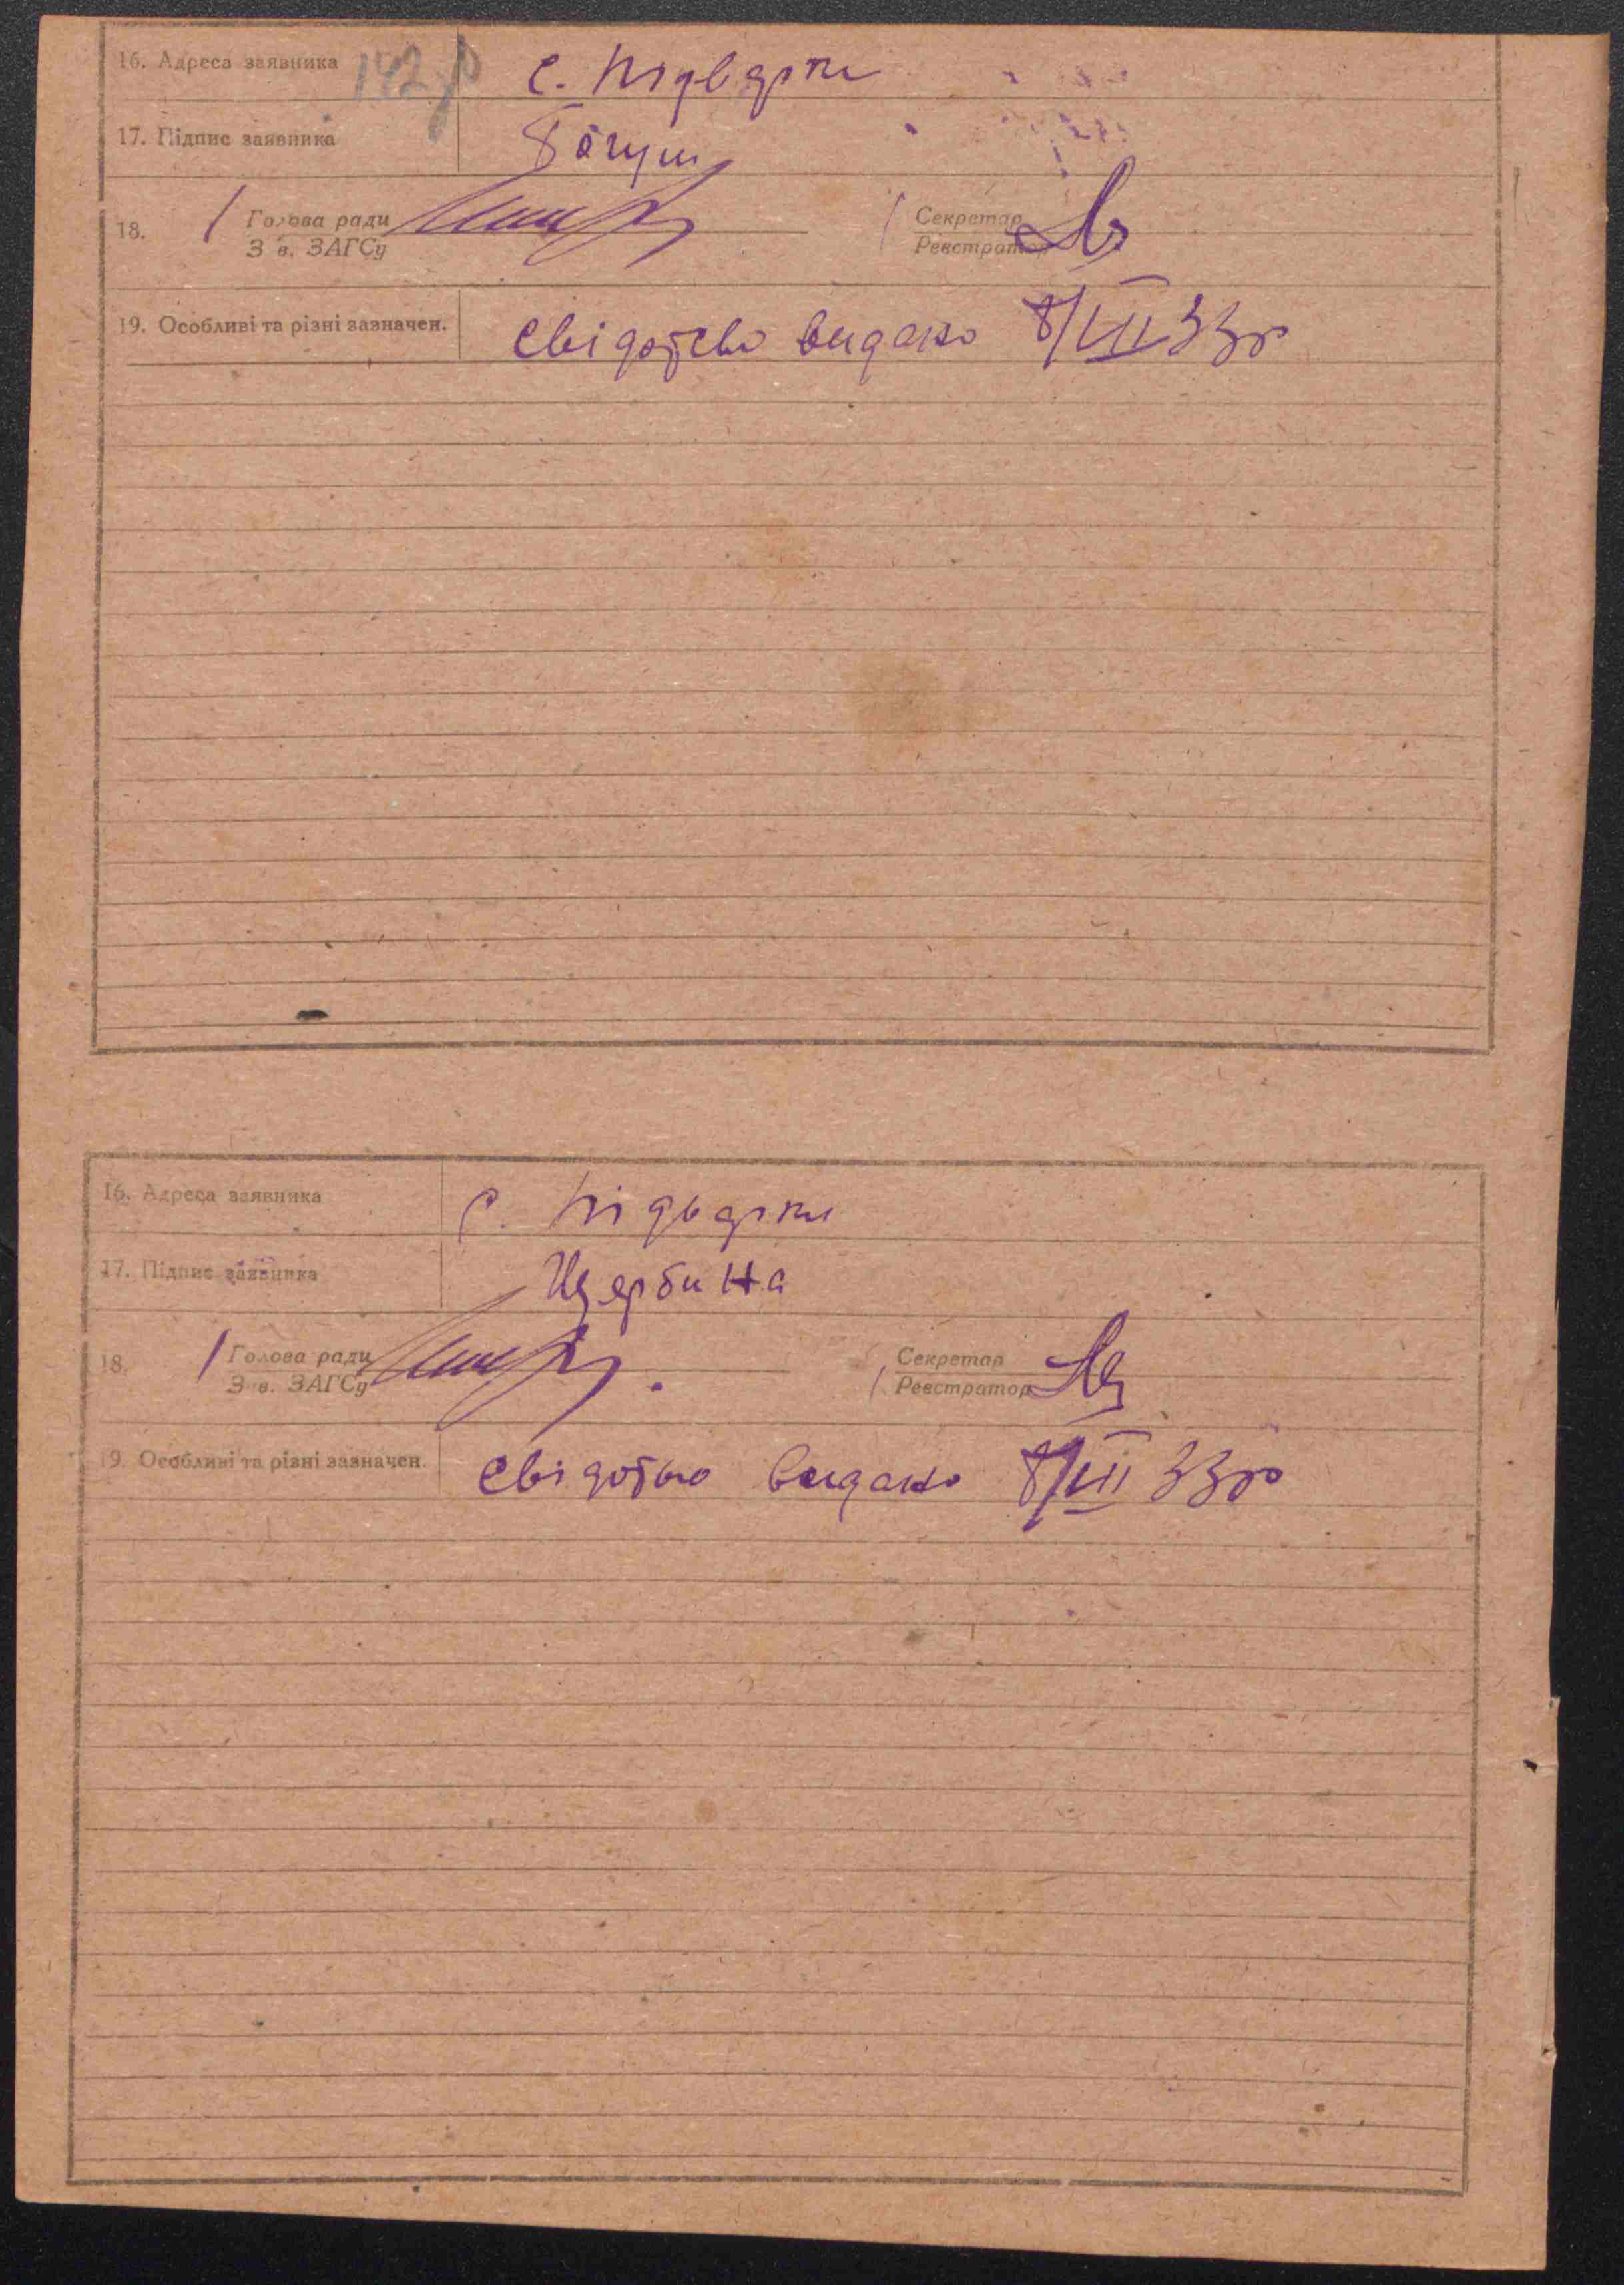 16. Адреса заявника с. Підварки
17. Підпис заявника Богуш
18. Голова ради Секретар
Зав. ЗАГСу Реєстратор
19. Особливі та різні зазначен. свідотсво видано 8/VII 33р
16. Адреса заявника с. Підварки
17. Підпис заявника Щербина
18. Голова ради Секретар
Зав. ЗАГСу Реєстратор
19. Особливі та різні зазначен. видано 8/VII 33р